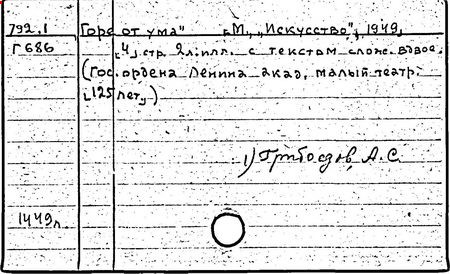 792.1 Горе от ума" „М., „Искусство", 1949,
Г 686 „4" стр. 2 л. илл. с текстом слож. вдвое.
(Гос. ордена Ленина акад. малый театр.
„125 лет„)
1) Грибоедов, А.С.
1449л